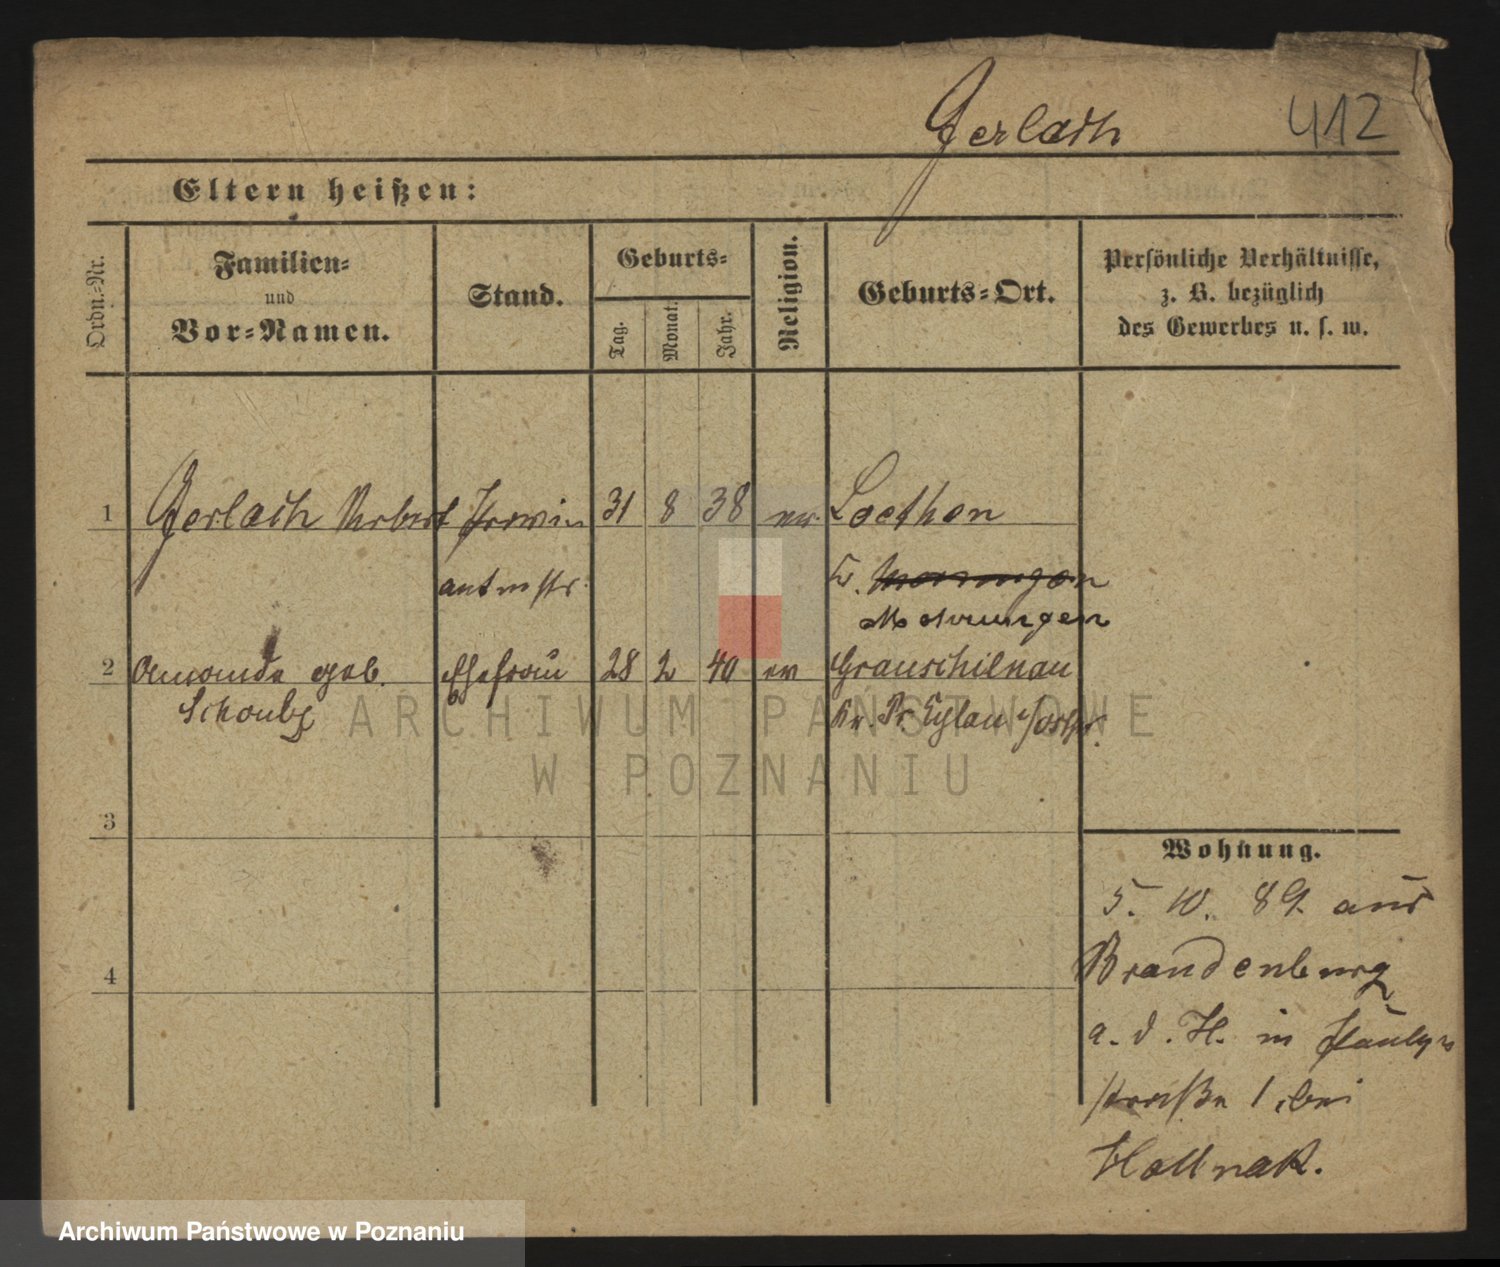 Gerlach 412
Eltern heißen:
Ordn.-Nr.
Familien-
und
Vor-Namen.
Stand.
Geburts-
Tag.
Monat.
Jahr.
Religion.
Geburts-Ort.
Persönliche Verhältnisse,
z. B. bezüglich
des Gewerbes u. s. w.
1 Gerlach Robert 31 8 38 ev. Loethen
Mohrungen
2 Amanda geb. Ehefrau 28 2 40 ev Grauschienau
Kr. Pr. Eylau
ARCHIWUM PAŃSTWOWE
W POZNANIU
3
4
Wohnung.
5. 10. 89. aus
Brandenburg
a. d. H. in
straße 1, bei
Archiwum Państwowe w Poznaniu